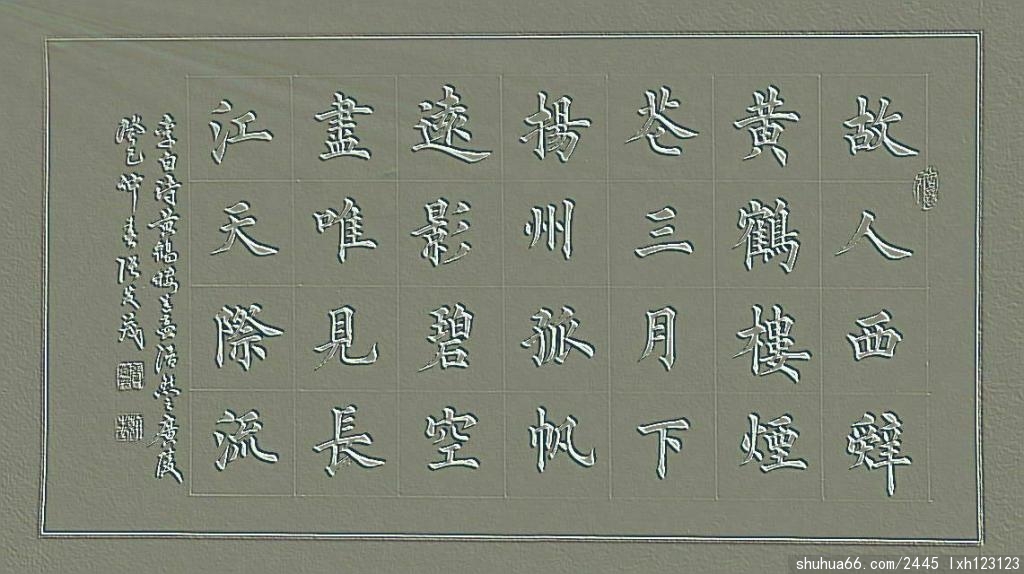 故人西辭
黃鶴樓煙
花三月下
揚州孤帆
遠影碧空
盡唯見長
江天際流
李白詩黃鶴樓送孟浩然之廣陵
癸巳仲春
shuhua66.com/2445 lxh123123